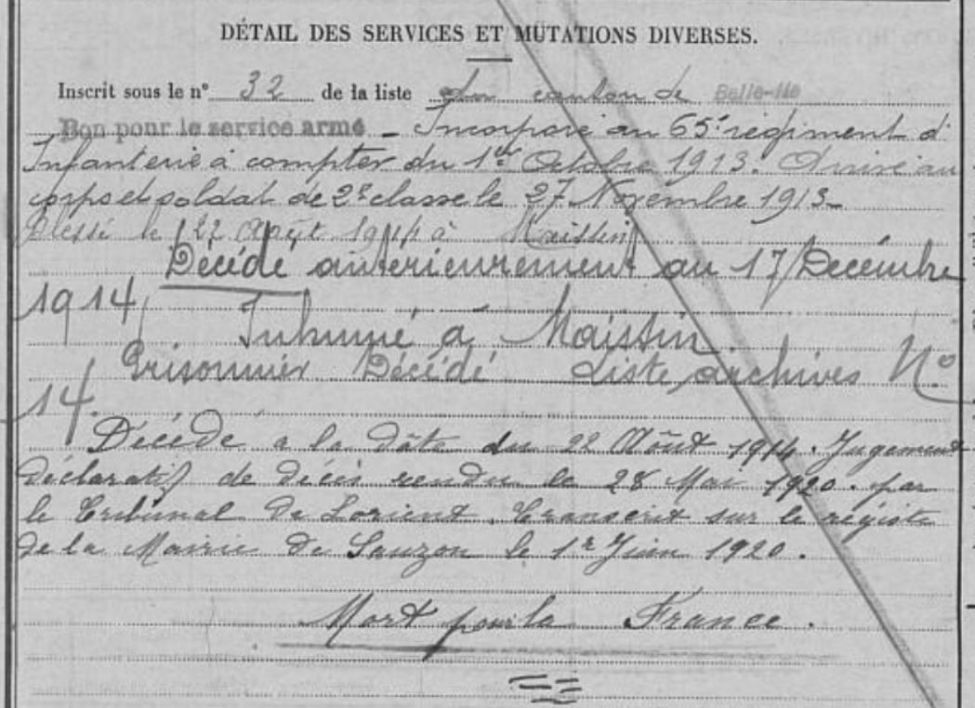 DÉTAIL DES SERVICES ET MUTATIONS DIVERSES.
Inscrit sous le n° 32 de la liste du canton de Belle-Ile
Bon pour le service armé _ Incorporé au 65e régiment d'
Infanterie à compter du 1er Octobre 1913. Arrivé au
corps et soldat de 2e classe le 27 Novembre 1913_
Blessé le 22 Août 1914 à Maissin
Décédé antérieurement au 17 Décembre
1914
Inhumé à Maissin
Prisonnier Décédé Liste archives N°
14.
Décédé à la dâte du 22 Aôut 1914. Jugement
déclaratif de décès rendu le 28 Mai 1920. par
le Tribunal de Lorient. Transcrit sur le régistre
de la Mairie de Sauzon le 1r Juin 1920.
Mort pour la France.